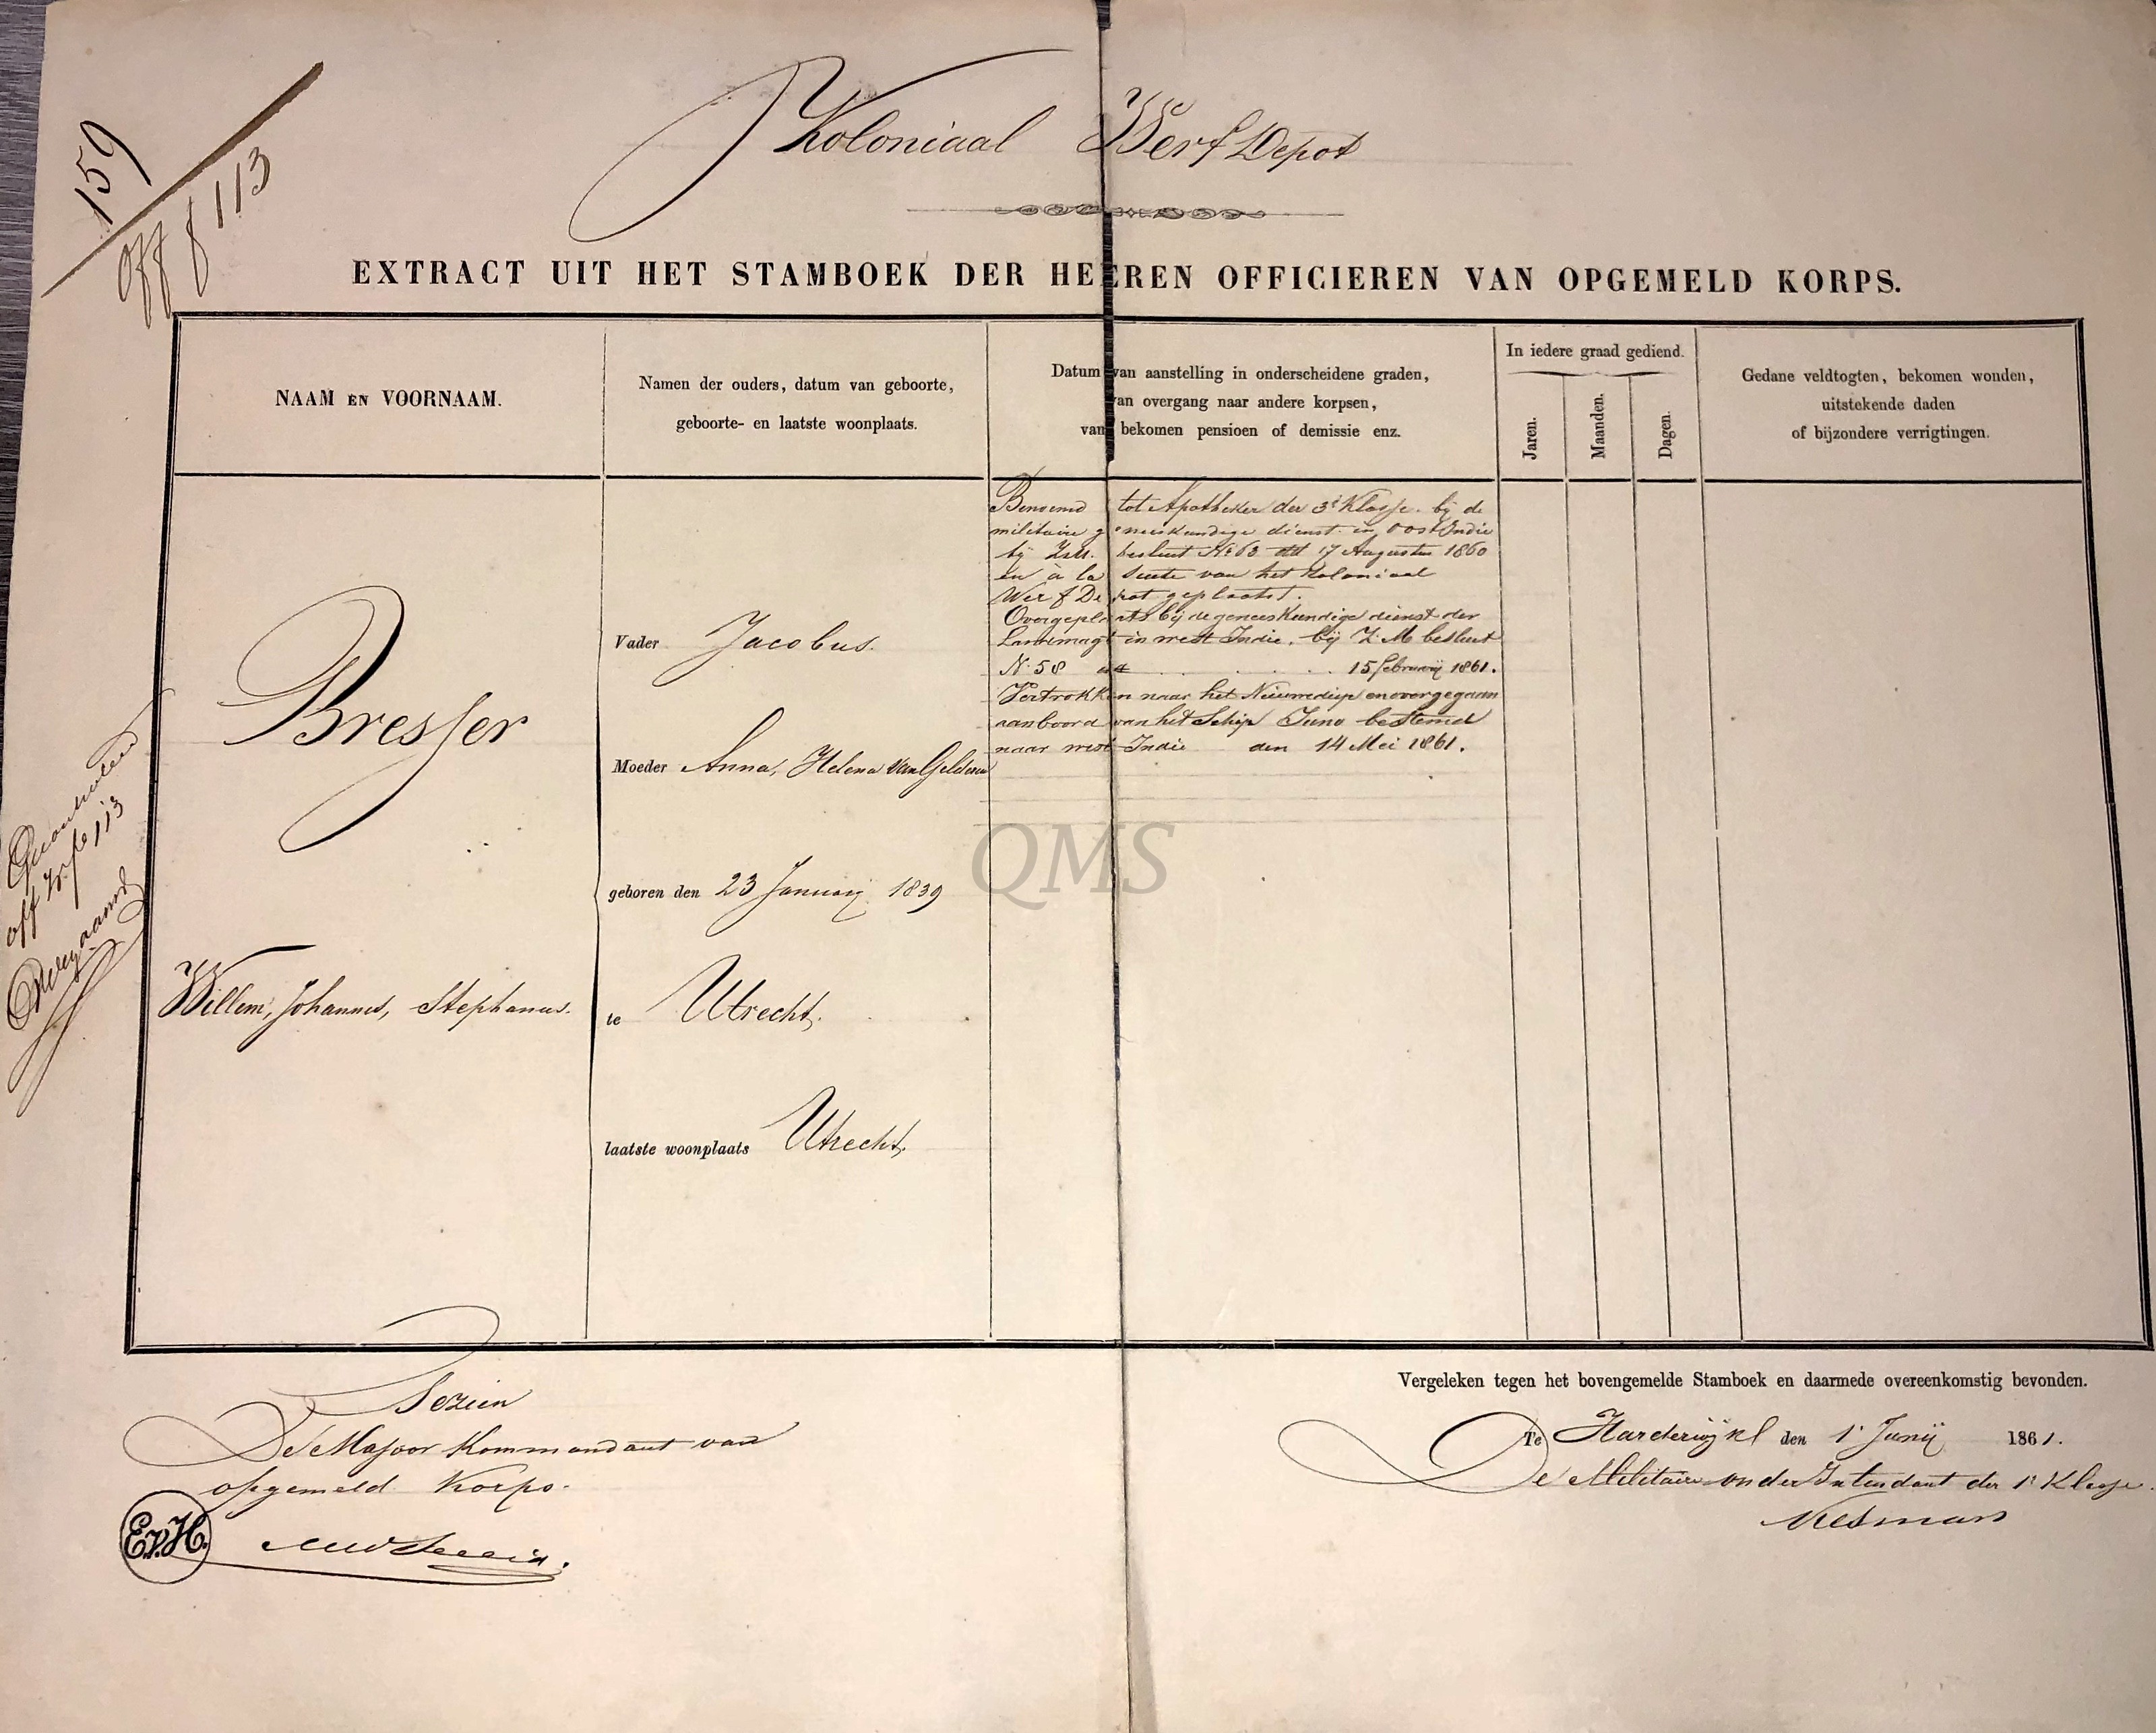 159
Off f 113
Koloniaal Werf Depot
EXTRACT UIT HET STAMBOEK DER HEEREN OFFICIEREN VAN OPGEMELD KORPS.
NAAM EN VOORNAAM.
Namen der ouders, datum van geboorte,
geboorte- en laatste woonplaats.
Datum van aanstelling in onderscheidene graden,
van overgang naar andere korpsen,
van bekomen pensioen of demissie enz.
In iedere graad gediend.
Jaren.
Maanden.
Dagen.
Gedane veldtogten, bekomen wonden,
uitstekende daden
of bijzondere verrigtingen.
Bresser
Willem, Johannes, Stephanus.
Vader Jacobus.
Moeder Anna, Helena van Gelderen
geboren den 23 Januarij 1839
te Utrecht.
laatste woonplaats Utrecht.
Benoemd tot Apotheker der 3e Klasse bij de
militaire geneeskundige dienst in Oost Indie
bij Z.M. besluit No 63 dd 17 Augustus 1860
en à la suite van het Koloniaal
Werf Depot geplaatst.
Overgeplaatst bij de geneeskundige dienst der
Landmagt in west Indie. bij Z.M besluit
N. 58 dd 15 februarij 1861.
Vertrokken naar het Nieuwediep en overgegaan
aan boord van het Schip Juno bestemd
naar west Indie den 14 Mei 1861.
off f 113
QMS
Gezien
De Majoor Kommandant van
opgemeld Korps.
E.v.H.
Vergeleken tegen het bovengemelde Stamboek en daarmede overeenkomstig bevonden.
Te Harderwijk den 1e Junij 1861.
De Militaire onder Intendant der 1e Klasse.